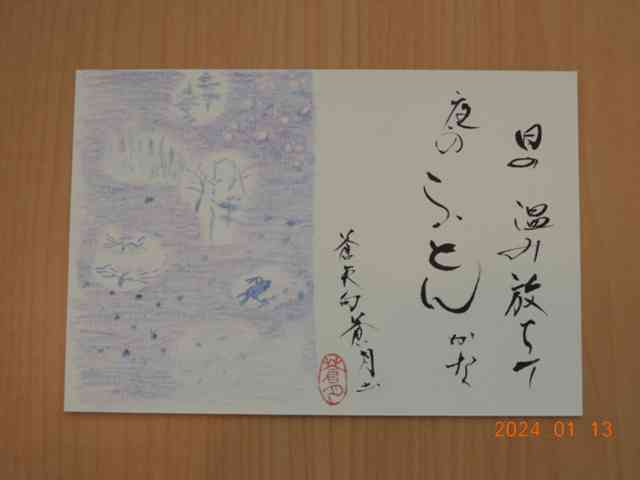 日の温み放ちて
夜のふとんかな
蒼天句 蒼月山
2024 01 13